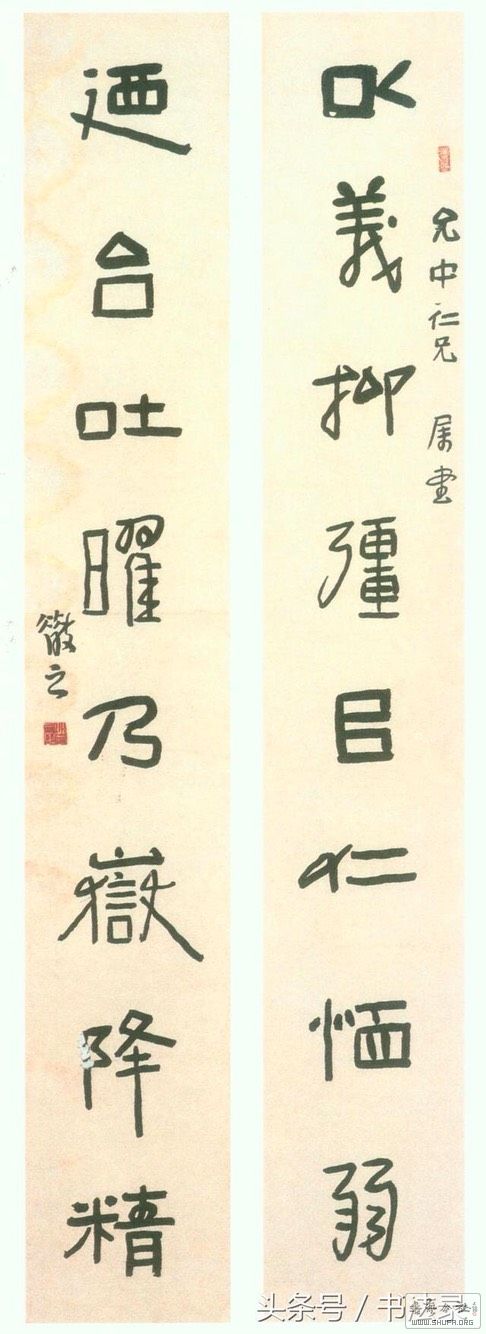 允中仁兄 属書
㕥義抑彊㠯仁恤弱
迺台吐曜乃嶽降精
头条号 / 书法录
WWW.SHUFA.ORG